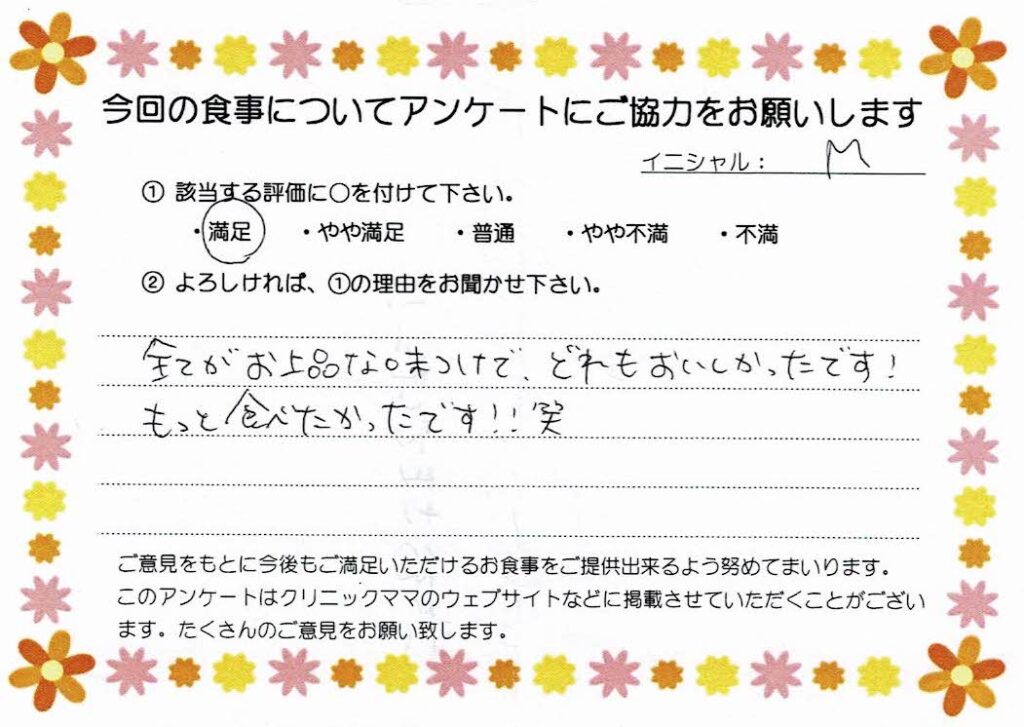 今回の食事についてアンケートにご協力をお願いします
イニシャル： M
① 該当する評価に○を付けて下さい。
・満足 ・やや満足 ・普通 ・やや不満 ・不満
② よろしければ、①の理由をお聞かせ下さい。
全てがお上品な味つけで、どれもおいしかったです！
もっと食べたかったです！！笑
ご意見をもとに今後もご満足いただけるお食事をご提供出来るよう努めてまいります。
このアンケートはクリニックママのウェブサイトなどに掲載させていただくことがござい
ます。たくさんのご意見をお願い致します。